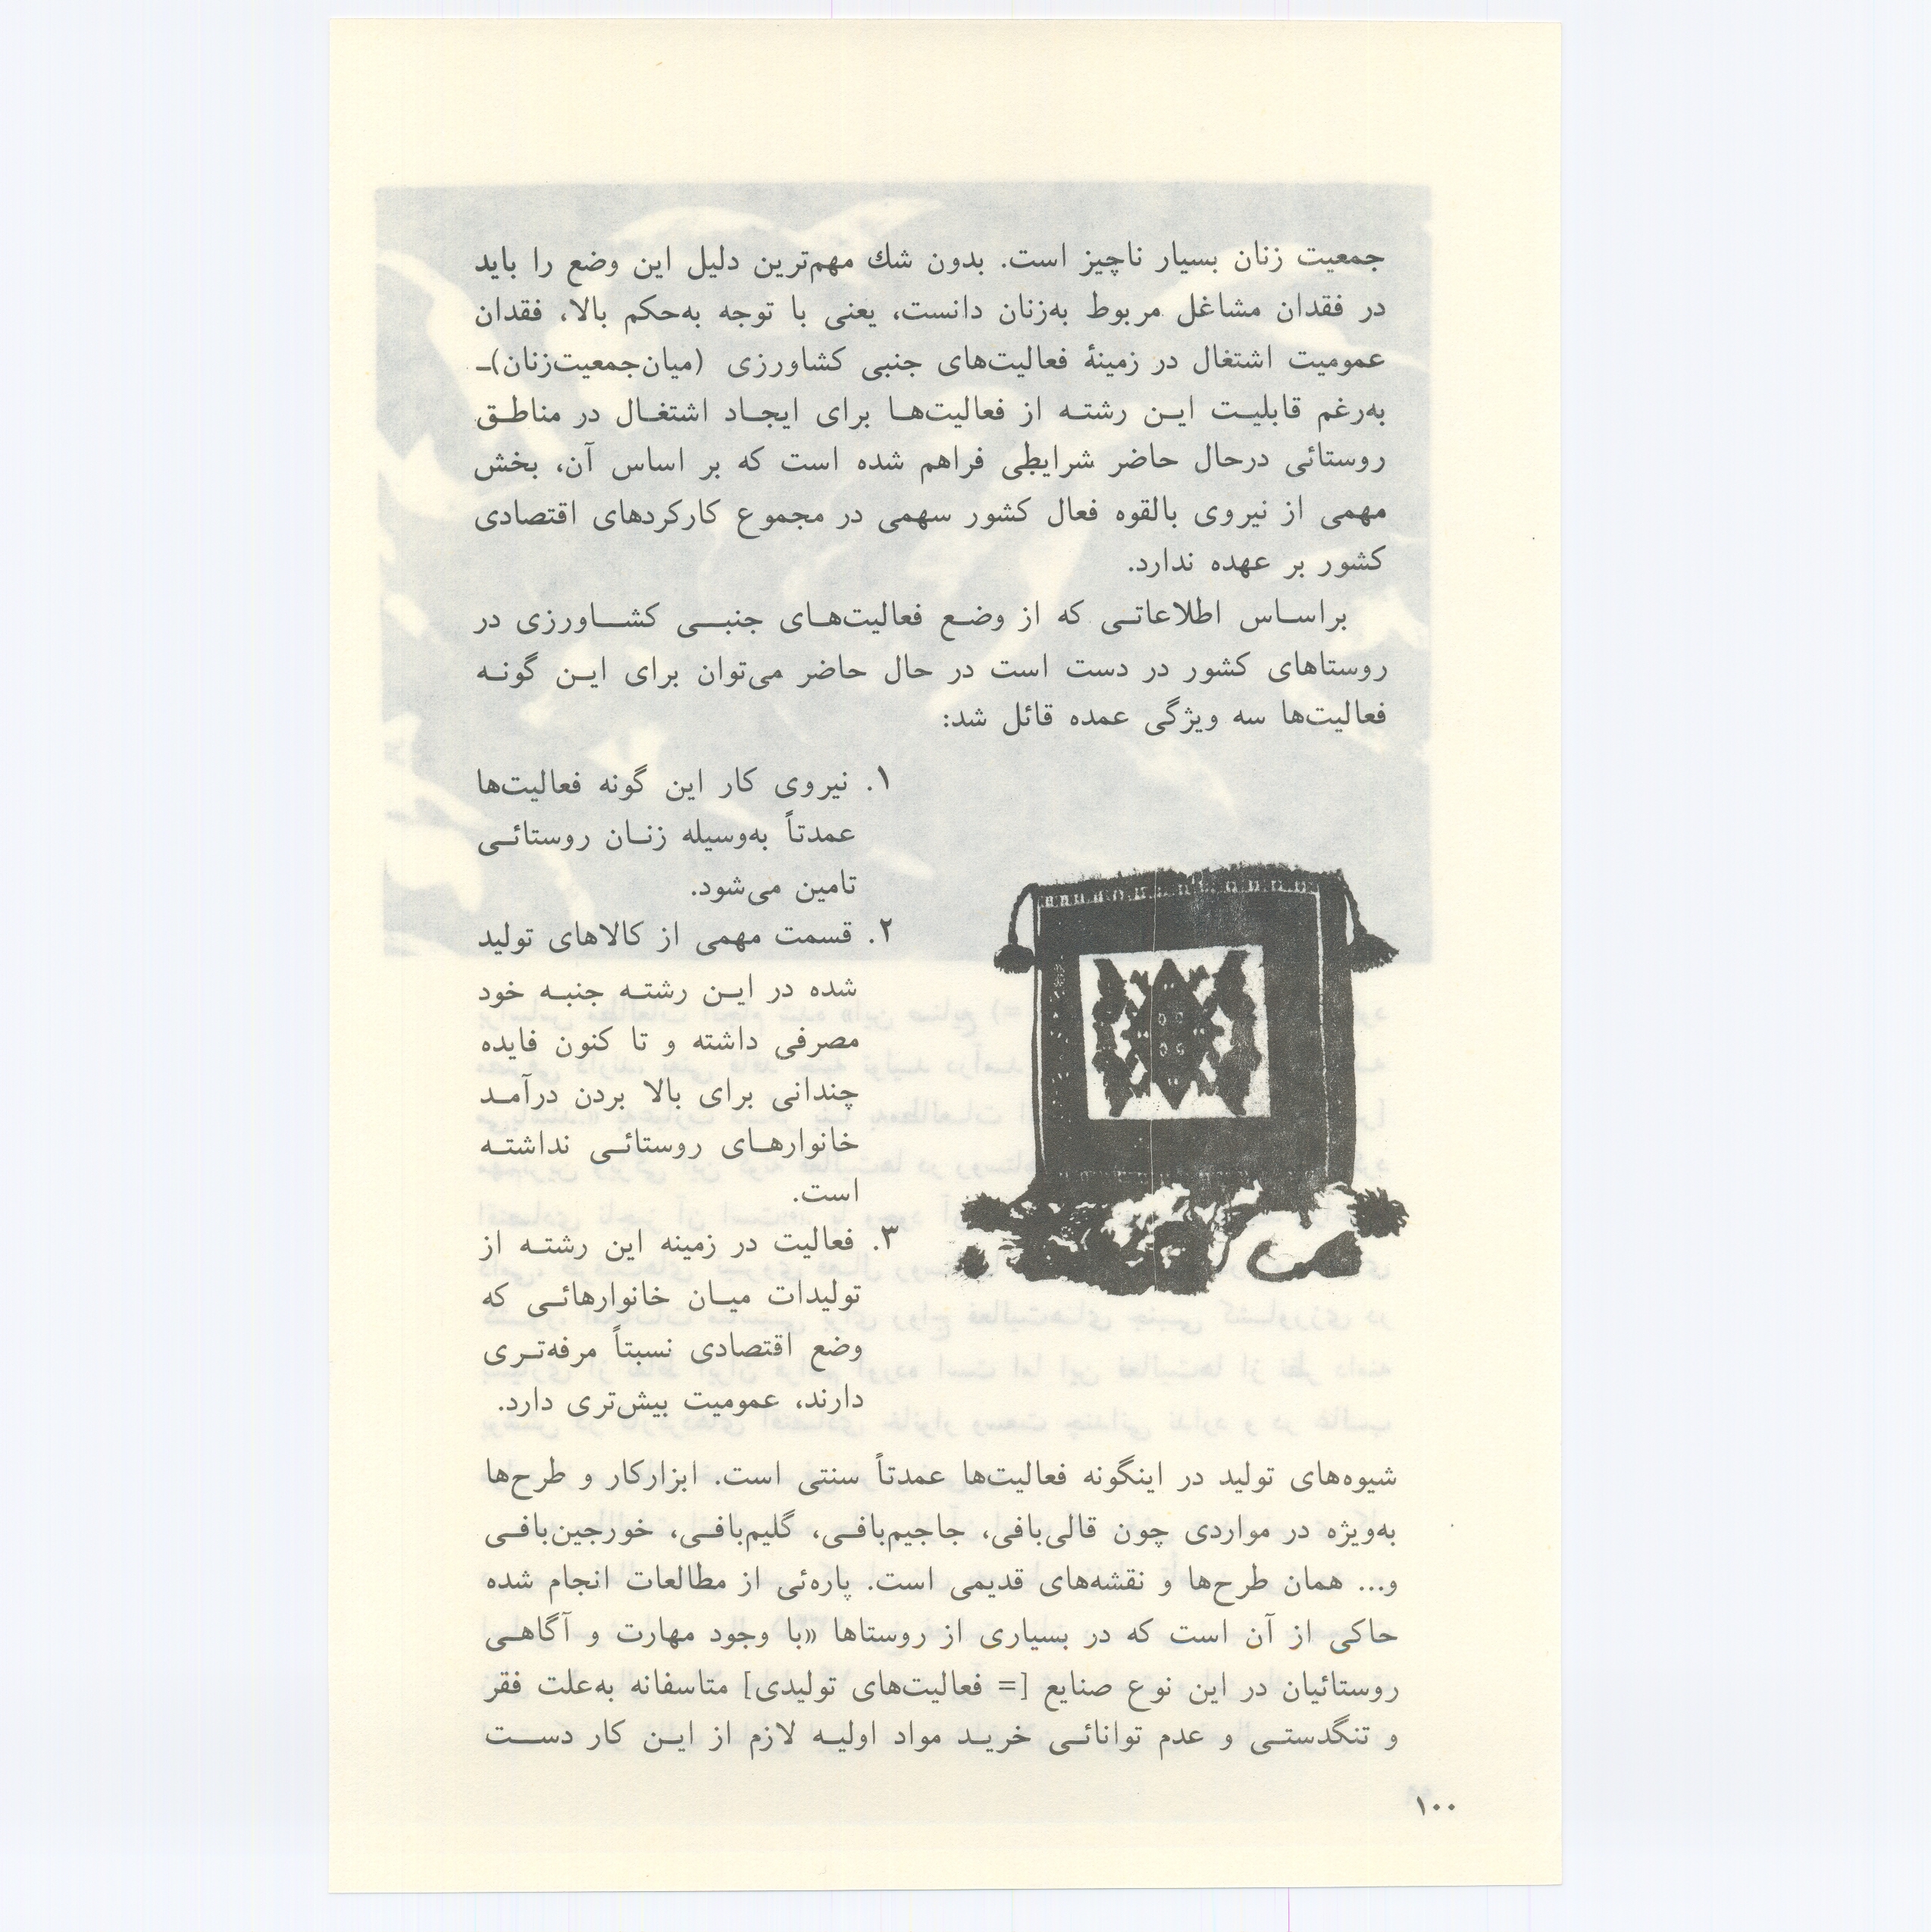 جمعیت زنان بسیار ناچیز است. بدون شك مهم‌ترین دلیل این وضع را باید
در فقدان مشاغل مربوط به‌زنان دانست، یعنی با توجه به‌حکم بالا، فقدان
عمومیت اشتغال در زمینهٔ فعالیت‌های جنبی کشاورزی (میان‌جمعیت‌زنان)ـ
به‌رغم قابلیـت ایـن رشتـه از فعالیت‌هـا برای ایجـاد اشتغـال در مناطـق
روستائی درحال حاضر شرایطی فراهم شده است که بر اساس آن، بخش
مهمی از نیروی بالقوه فعال کشور سهمی در مجموع کارکردهای اقتصادی
کشور بر عهده ندارد.
براسـاس اطلاعاتـی که از وضـع فعالیت‌هـای جنبـی کشـاورزی در
روستاهای کشور در دست است در حال حاضر می‌توان برای ایـن گونـه
فعالیت‌ها سه ویژگی عمده قائل شد:
۱. نیروی کار این گونه فعالیت‌ها
عمدتاً به‌وسیله زنـان روستائـی
تامین می‌شود.
۲. قسمت مهمی از کالاهای تولید
شده در ایـن رشتـه جنبـه خود
مصرفی داشته و تا کنون فایده
چندانی برای بالا بردن درآمـد
خانوارهـای روستائـی نداشتـه
است.
۳. فعالیت در زمینه این رشتـه از
تولیدات میـان خانوارهائـی که
وضع اقتصادی نسبتاً مرفه‌تـری
دارند، عمومیت بیش‌تری دارد.
شیوه‌های تولید در اینگونه فعالیت‌ها عمدتاً سنتی است. ابزارکار و طرح‌ها
به‌ویژه در مواردی چون قالی‌بافی، جاجیم‌بافـی، گلیم‌بافـی، خورجین‌بافـی
و... همان طرح‌ها و نقشه‌های قدیمی است. پاره‌ئی از مطالعات انجام شده
حاکی از آن است که در بسیاری از روستاها «با وجود مهارت و آگاهـی
روستائیان در این نوع صنایع [= فعالیت‌های تولیدی] متاسفانه به‌علت فقر
و تنگدستـی و عدم توانائـی خریـد مواد اولیـه لازم از ایـن کار دسـت
۱۰۰